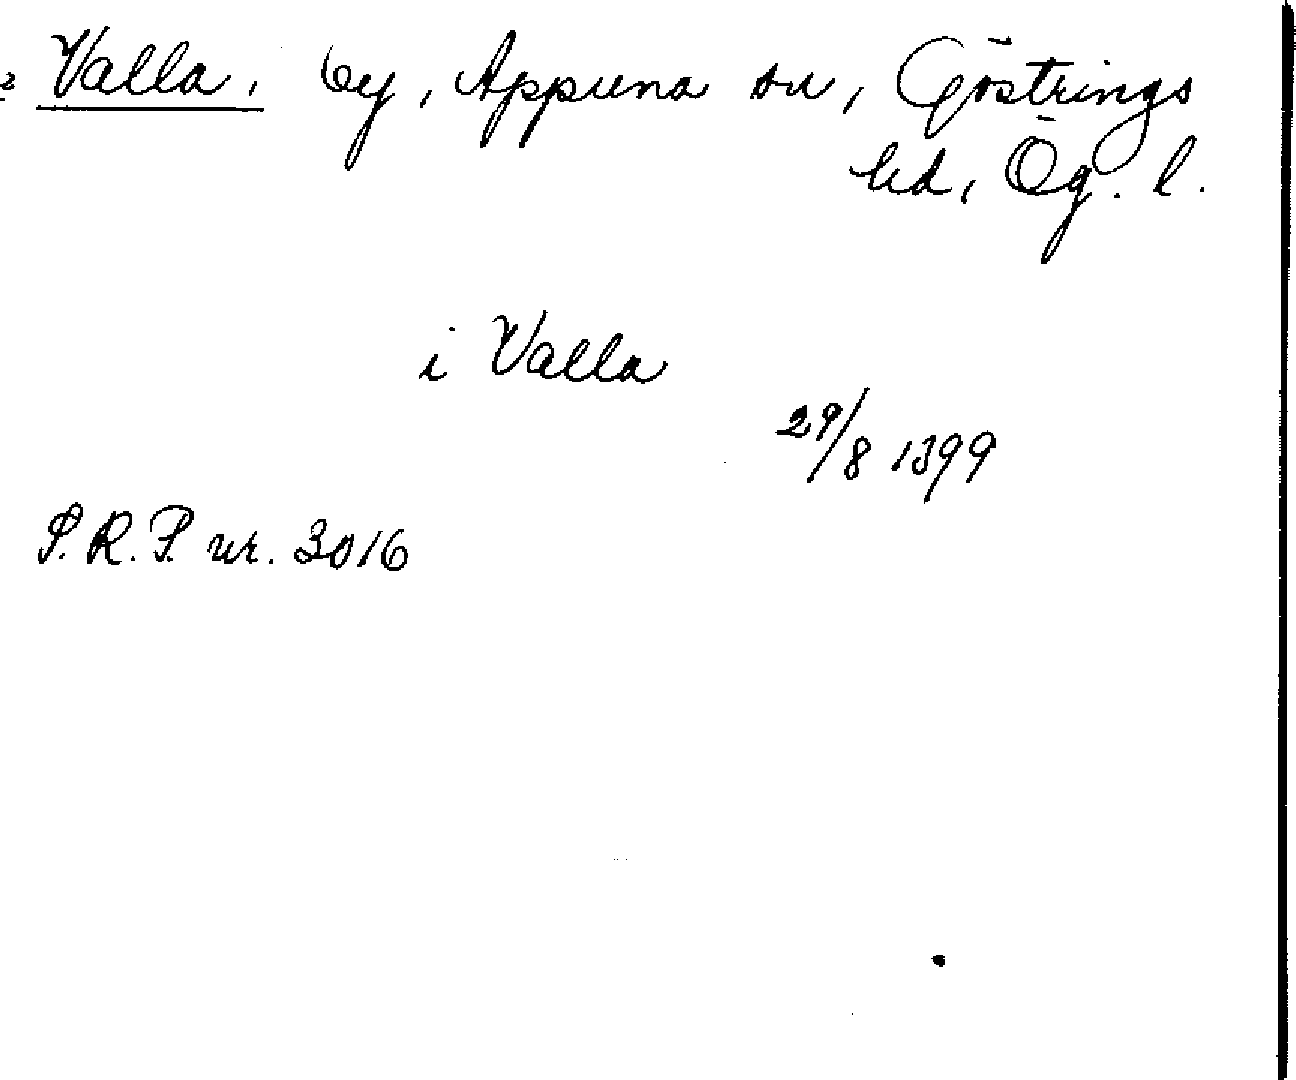 Valla, by, Appuna sn, Göstrings
hd, Ög. l.
i Valla
29/8 1399
S.R.P. nr. 3016